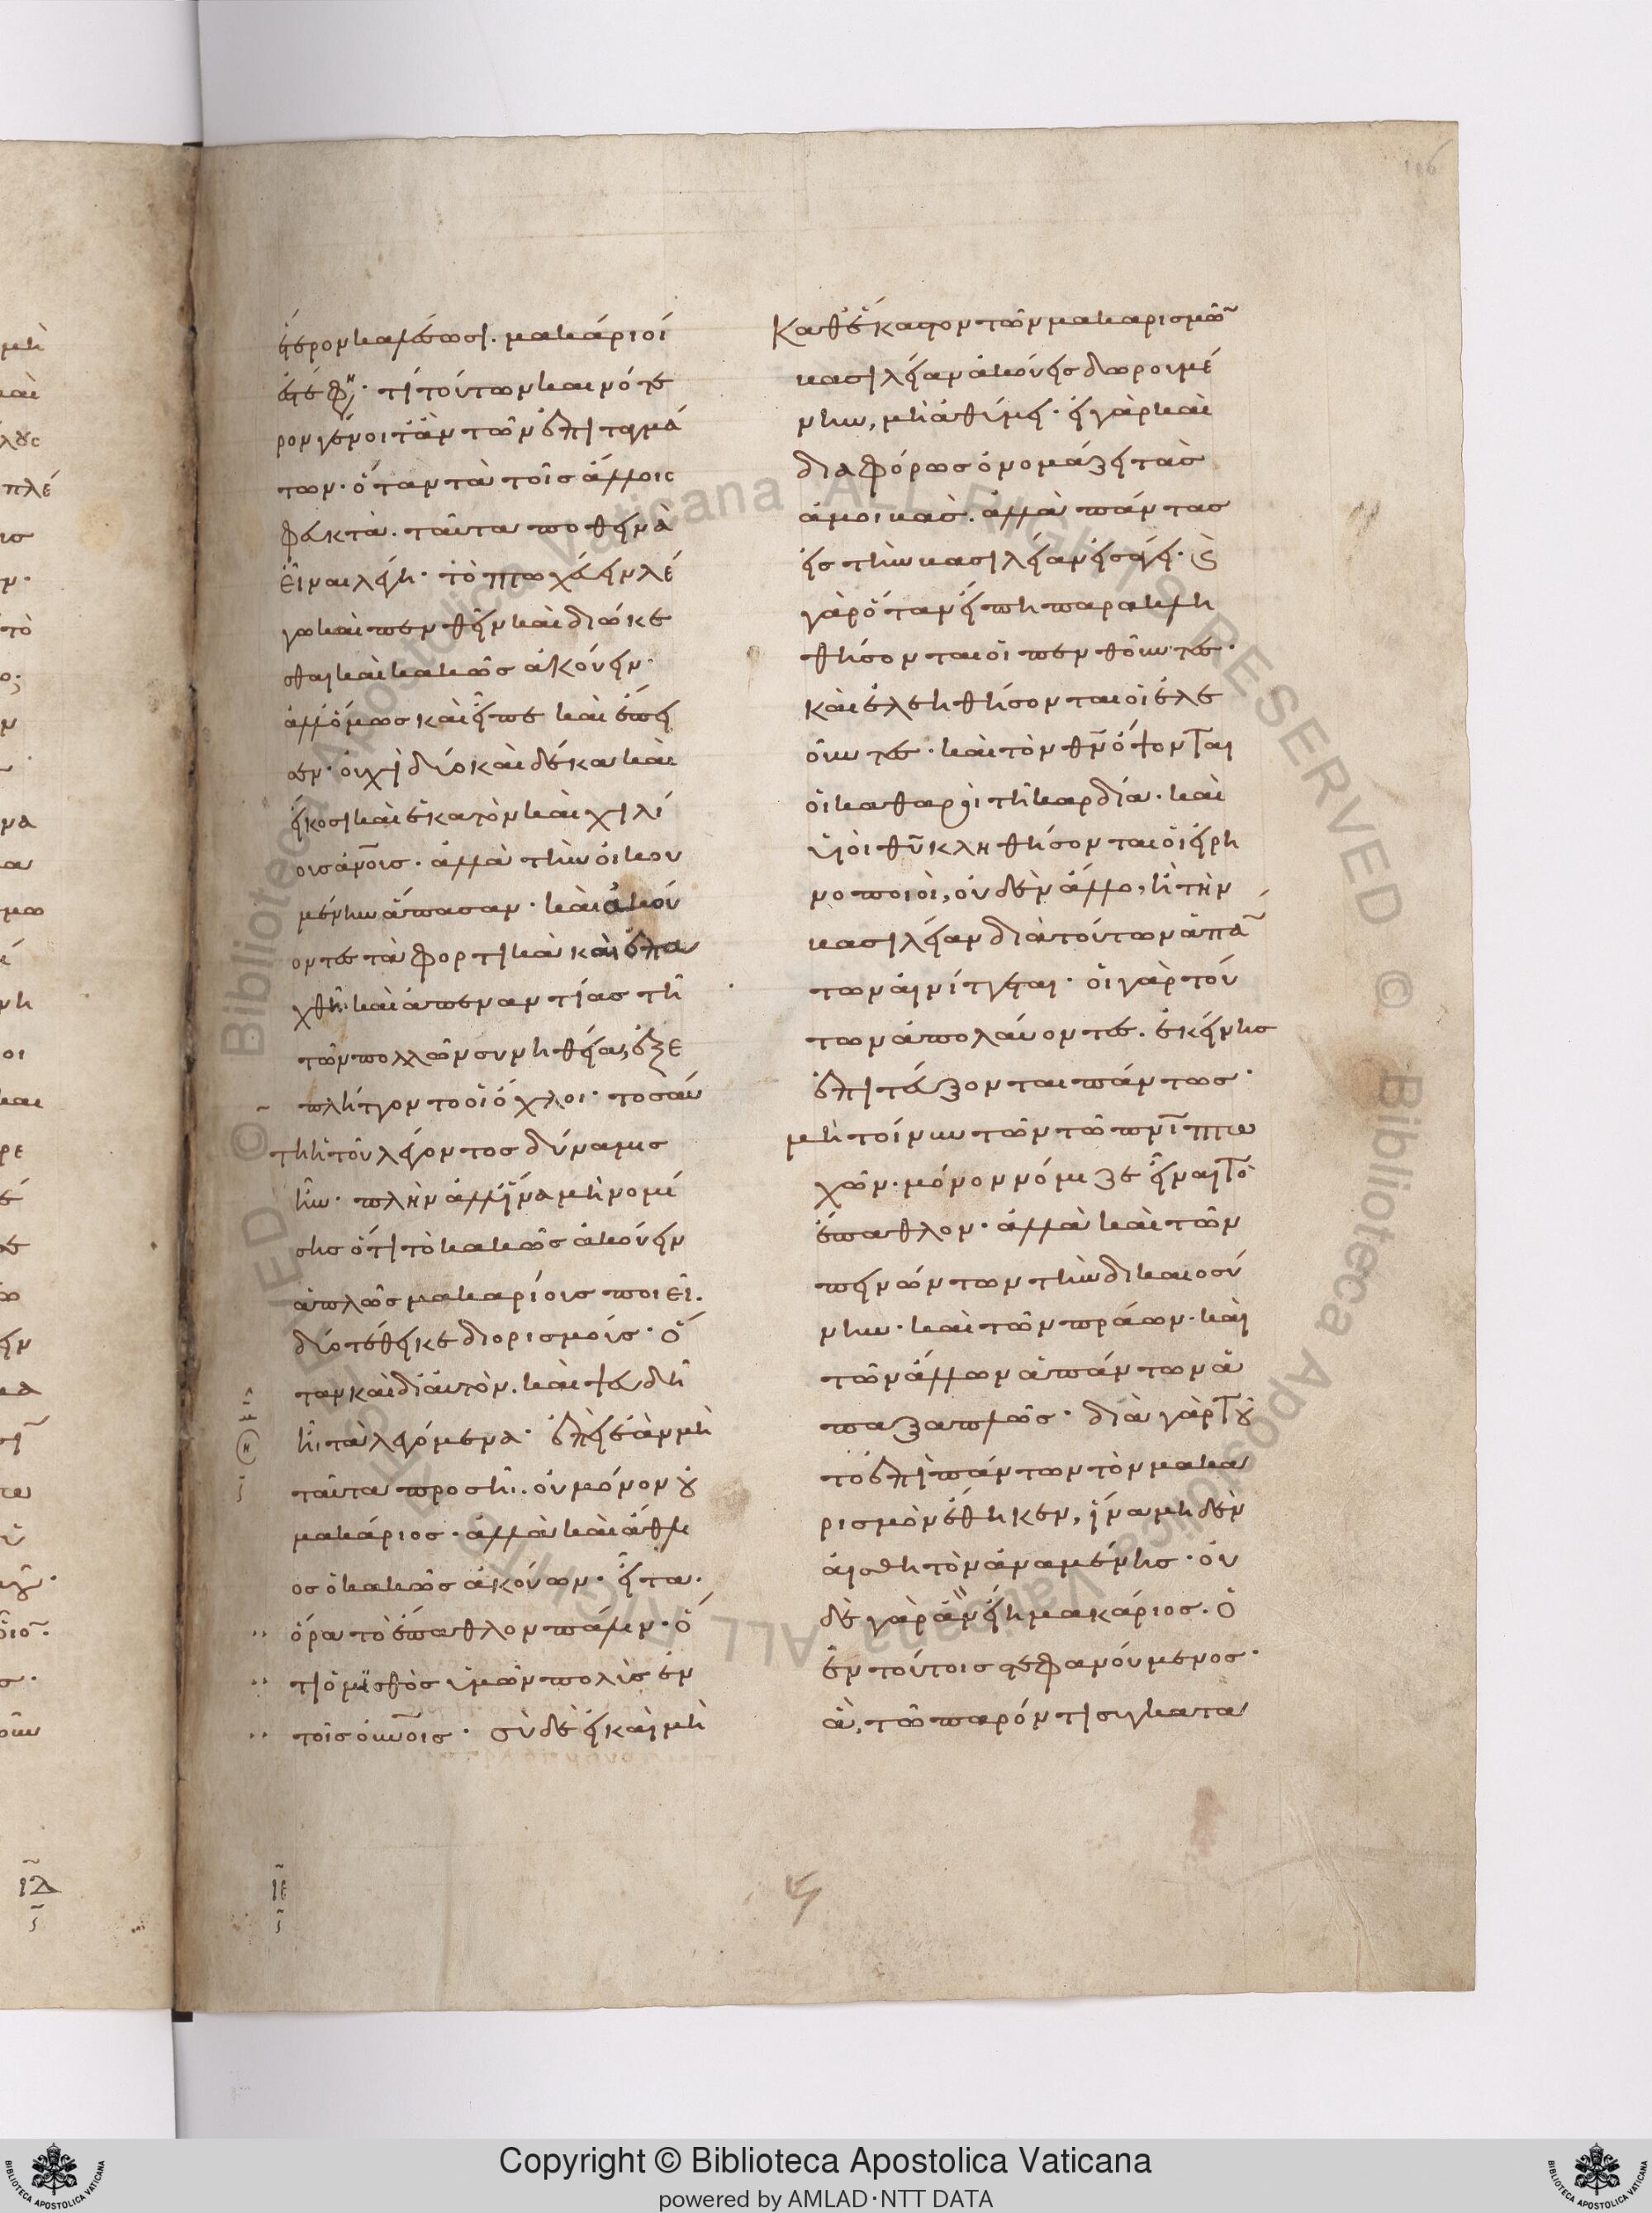 ἕτερον καλέσωσι. μακάριοί
ἐστέ φη· τί τούτων καινότε
ρον γένοιτ' ἂν τῶν ἐπιταγμά
των· ὅταν τὰ τοῖς ἄλλοις
φευκτὰ. ταῦτα ποθεινὰ
εἶναι λέγη· τὸ πτωχεύειν λέ
γω καὶ πενθεῖν καὶ διώκε
σθαι καὶ κακῶς ἀκούειν·
ἀλλ' ὅμως καὶ εἶπε καὶ ἔπει
σεν· οὐχὶ δύο καὶ δέκα καὶ
εἴκοσι καὶ ἑκατὸν καὶ χιλί
οις ἀνοις· ἀλλὰ τὴν οἰκου
μένην ἅπασαν· καὶ ἀκού
οντες τὰ φορτικὰ καὶ ἐπα
χθῆ· καὶ ἀπεναντίας τῆ
τῶν πολλῶν συνηθεία, ἐξε
πλήττοντο οἱ ὄχλοι· τοσαύ
τη ἡ τοῦ λέγοντος δύναμις
ἦν· πλὴν ἀλλ' ἵνα μὴ νομί
σης ὅτι τὸ κακῶς ἀκούειν
ἁπλῶς μακαρίους ποιεῖ.
δύο τέθεικε διορισμούς· ὅ
ταν καὶ δι' αὐτὸν. καὶ ψευδῆ
ἦ τὰ λεγόμενα· ἐπεὶ ἐὰν μὴ
ταῦτα προσῆ. οὐ μόνον οὐ
μακάριος· ἀλλὰ καὶ ἄθλι
ος ὁ κακῶς ἀκούων· εἶτα·
ὅρα τὸ ἔπαθλον πάλιν· ὅ
τι ὁ μισθὸς ὑμῶν πολὺς ἐν
τοῖς οὐνοις· σὺ δὲ εἰ καὶ μὴ
ΙΕ
Καθ' ἕκαστον τῶν μακαρισμῶ
βασιλείαν ἀκούεις δωρουμέ
νην, μὴ ἀθύμει· εἰ γὰρ καὶ
διαφόρως ὀνομάζει τὰς
ἀμοιβὰς. ἀλλὰ πάντας
εἰς τὴν βασιλείαν εἰσάγει· καὶ
γὰρ ὅταν εἴπη παρακλη
θήσονται οἱ πενθοῦντες·
καὶ ἐλεηθήσονται οἱ ἐλε
οῦντες· καὶ τὸν θν ὄψονται
οἱ καθαροὶ τῆ καρδία· καὶ
υἱοὶ θυ κληθήσονται οἱ εἰρη
νοποιοὶ, οὐδὲν ἄλλο, ἢ τὴν
βασιλείαν διὰ τούτων ἁπά
των αἰνίττεται· οἱ γὰρ τού
των ἀπολαύοντες. ἐκείνης
ἐπιτεύξονται πάντως·
μὴ τοίνυν τῶν τῶ πνι πτω
χῶν· μόνον νόμιζε εἶναι τὸ
ἔπαθλον· ἀλλὰ καὶ τῶν
πεινώντων τὴν δικαιοσύ
νην· καὶ τῶν πράων· καὶ
τῶν ἄλλων ἁπάντων ἅ
παξαπλῶς· διὰ γὰρ τοῦ
το ἐπὶ πάντων τὸν μακα
ρισμὸν ἔθηκεν, ἵνα μηδὲν
αἰσθητὸν ἀναμένης· οὐ
δὲ γὰρ ἂν εἴη μακάριος. ὁ
ἐν τούτοις στεφανούμενος·
ἃ, τῶ παρόντι συγκατα